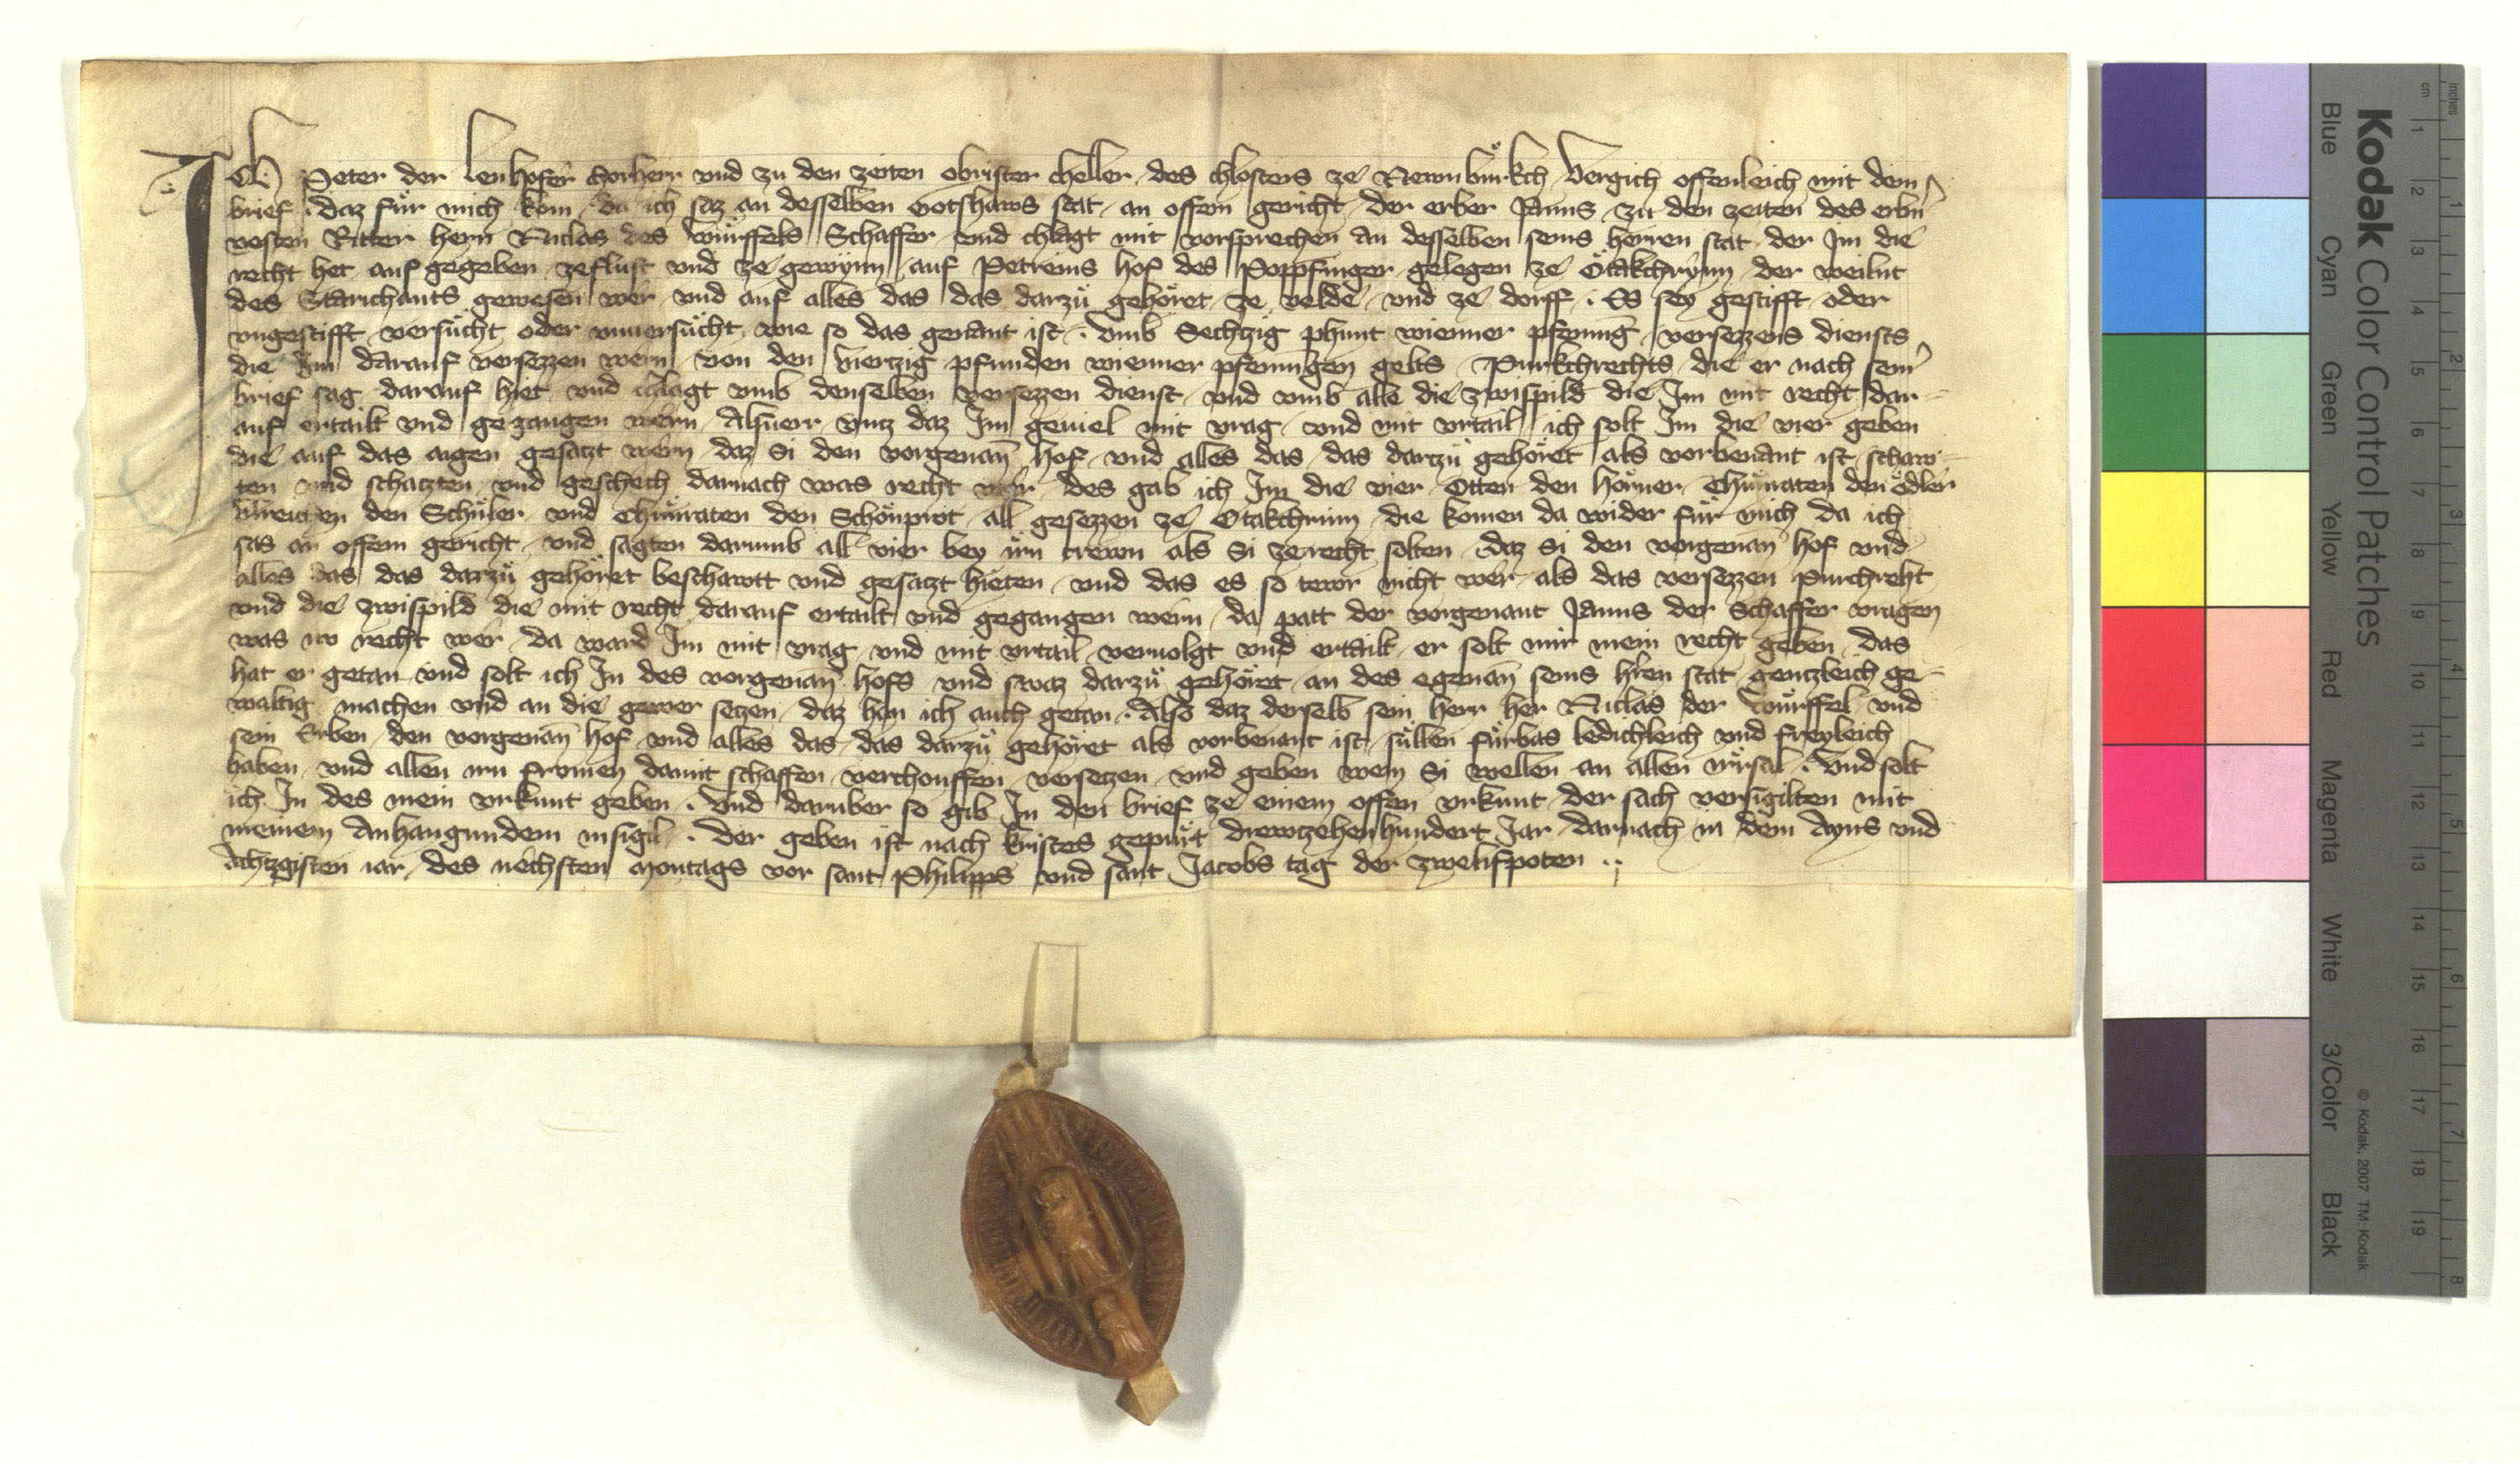 Ich Peter der Lenhofer chorherr vnd zu den zeiten obrister cheller des chlosters ze Newnbuͤrkch Vergich offenleich mit dem
brief · daz fuͤr mich kom da ich saz an desselben Gotshaws stat an offem gericht der erber Janns zu den zeiten des erbn̄
vesten Ritter hern Niclas des Wuͤrffels Schaffer vnd chlagt mit vorsprechen an desselben seins herren stat der Im die
recht het auf gegeben zeflust vnd ze gewynn auf Petreins hof des Poppfinger gelegen ze Otakchrynn der weilnt
des Starichants gewesen wer vnd auf alles das das darzuͤ gehoͤret ze velde vnd ze dorff · Es sey gestifft oder
vngestifft versuͤcht oder vnuersuͤcht wie so das genant ist · vmb Sechtzig phunt wienner pfenning versezzens diensts
die Im darauf versezzen wern von den Viertzig pfunden wienner pfenningen gelts Purkchrechts die er nach seinˀ
brief sag darauf hiet vnd chlagt vmb denselben versezzen dienst vnd vmb alle die zwispild die Im mit recht dar-
auf ertailt vnd gegangen wern Alsuerr vntz daz Im geuiel mit vrag vnd mit vrtail ich solt Im die vier geben
die auf das aigen gesatzt wern daz si den vorgenan̄ hof vnd alles das das dartzuͤ gehoͤret als vorbenant ist schaw-
ten vnd schatzten vnd geschech darnach was recht wer des gab ich Im die vier Otten den Chuͤnraten den Oͤdler
den Schuͤler vnd Chuͤnraten den Schoͤnprot all gesezzen ze Otakchrinn die komen da wider fuͤr mich da ich
sas an offem gericht vnd sagten darumb all vier bey irn trewn als si zerecht solten · daz si den vorgenan̄ hof vnd
alles das das darzuͤ gehoͤret beschawtt vnd gesatzt hieten vnd das es so tewr nicht wer als das versezzen Purchreht
vnd die zwispild die mit recht darauf ertailt vnd gegangen wern da patt der vorgenant Janns der Schaffer vragen
was nv recht wer da ward Im mit vrag vnd mit vrtail veruolgt vnd ertailt er solt mir mein recht geben das
hat er getan vnd solt ich In des vorgenan̄ hofs vnd swaz darzuͤ gehoͤret an des egenan̄ seins hren stat gentzleich ge-
waltig machen vnd an die gewer setzen daz han ich auch getan · Also daz derselb sein herr her Niclas der Wuͤrffel vnd
sein Erben den vorgenan̄ hof vnd alles das das darzuͤ gehoͤret als vorbenant ist suͤllen fuͤrbas ledichleich vnd freyleich
haben vnd allen irn frumen damit schaffen verchouffen versetzen vnd geben wem si wellen an allen irrsal · Vnd solt
ich In des mein vrkunt geben · Vnd daruber so gib In den brief ze einem offen vrkunt der sach versigilten mit
meinem Anhangundem insigil · der geben ist nach kristes gepuͤrt drewtzehenhundert Iar darnach in dem Ayns vnd
Achtzgisten iar des nechsten Montags vor sant Philipps vnd sant Jacobs tag der zwelifpoten
Kodak Color Control Patches
Blue Cyan Green Yellow Red Magenta White 3/Color Black
© Kodak, 2007 TM: Kodak
inches 1 2 3 4 5 6 7 8
cm 1 2 3 4 5 6 7 8 9 10 11 12 13 14 15 16 17 18 19